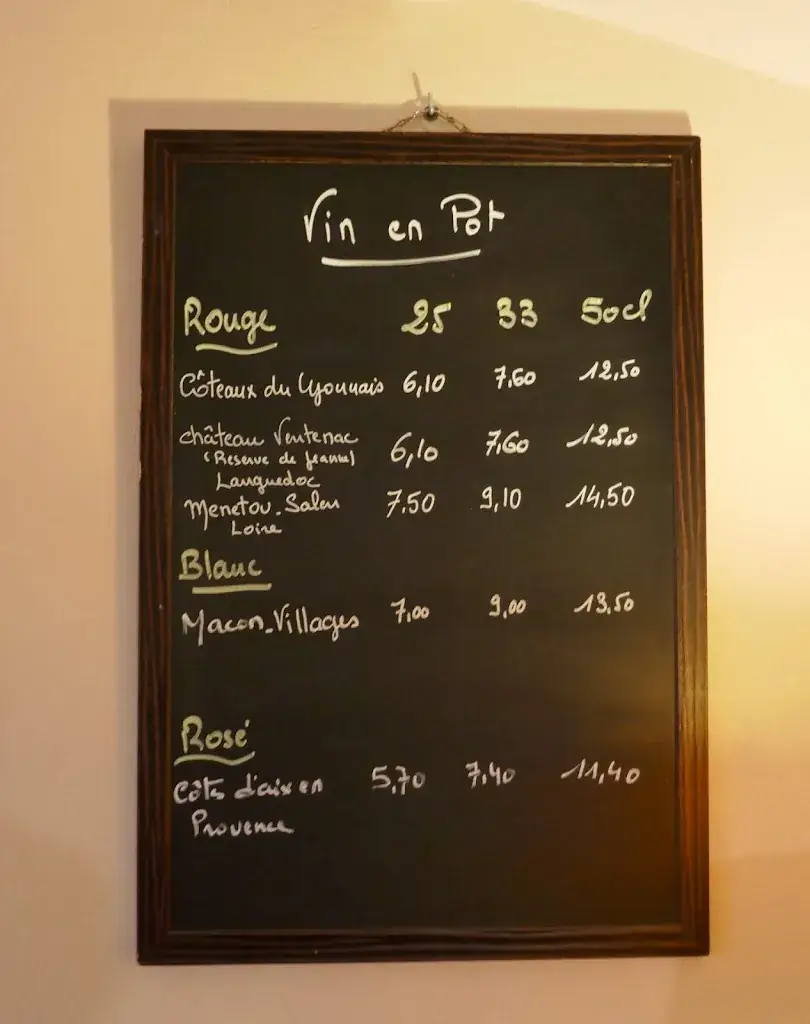 Vin en Pot
Rouge 25 33 50cl
Côteaux du Lyonnais 6,10 7,60 12,50
château Ventenac 6,10 7,60 12,50
(Reserve de Jeanne)
Languedoc
Menetou-Salon 7.50 9,10 14,50
Loire
Blanc
Macon-Villages 7,00 9,00 13,50
Rosé
Côts d'aix en 5,70 7,40 11,40
Provence